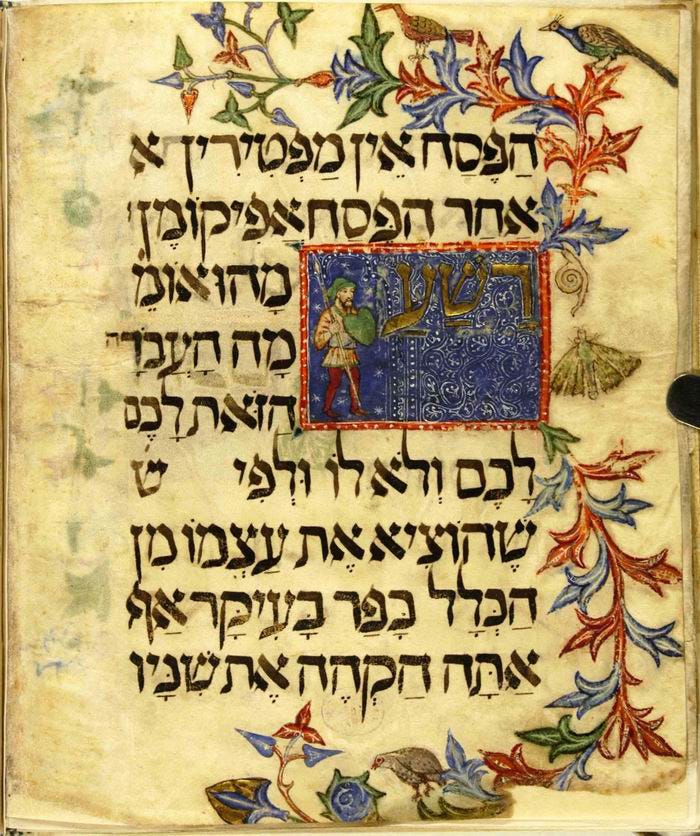 הַפֶּסַח אֵין מַפְטִירִין א
אַחַר הַפֶּסַח אֲפִיקוֹמָן
רָשָׁע מָהוּ אוֹמֵ
מָה הָעֲבֹדָה
הַזֹאת לָכֶם
לָכֶם וְלֹא לוֹ וּלְפִי ש
שֶׁהוֹצִיא אֶת עַצְמוֹ מִן
הַכְּלָל כָּפַר בָּעִיקָר אַף
אַתָּה הַקְהֵה אֶת שִׁנָּיו